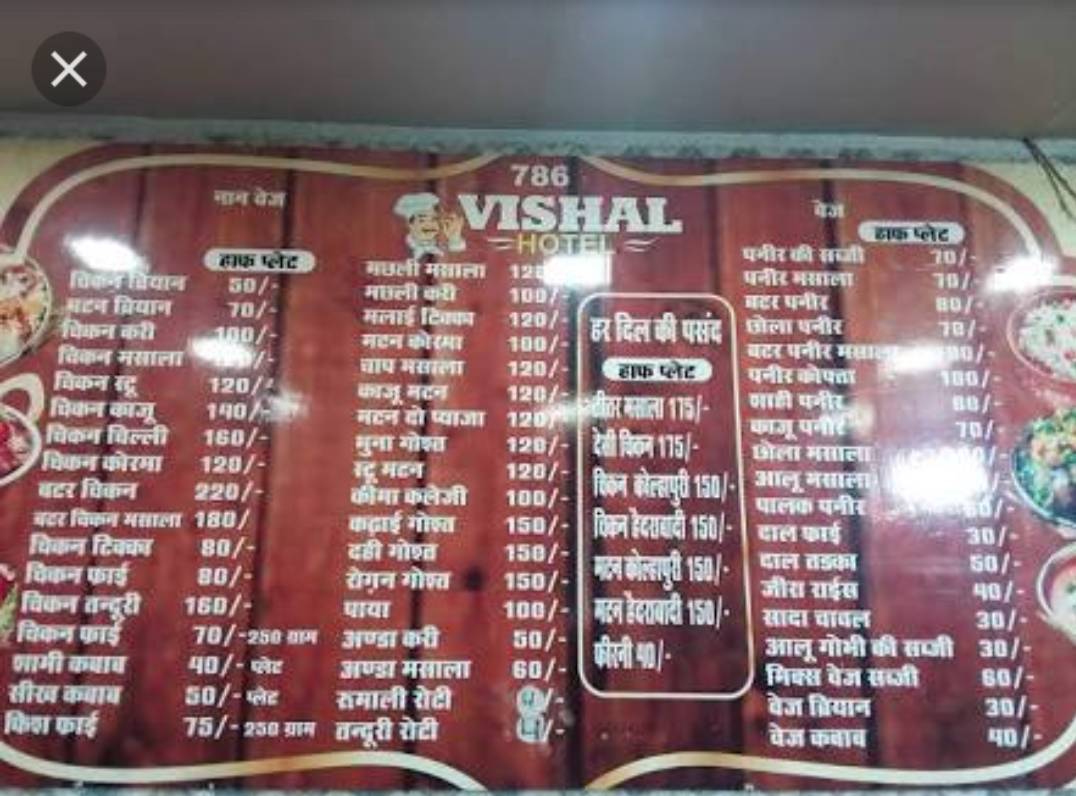 786
VISHAL
HOTEL
नान वेज
हाफ प्लेट
चिकन ब्रियान 50/-
मटन ब्रियान 70/-
चिकन करी 100/-
चिकन मसाला
चिकन स्टू 120/-
चिकन काजू 140/-
चिकन चिल्ली 160/-
चिकन कोरमा 120/-
बटर चिकन 220/-
बटर चिकन मसाला 180/
चिकन टिक्का 80/-
चिकन फाई 80/-
चिकन तन्दूरी 160/-
चिकन फाई 70/-250 ग्राम
शामी कबाब 40/- प्लेट
सीख कबाब 50/- प्लेट
फिश फाई 75/-250 ग्राम
मछली मसाला
मछली करी 100/-
मलाई टिक्का 120/-
मटन कोरमा 100/-
चाप मसाला 120/-
काजू मटन 120/-
मटन दो प्याजा 120/-
भुना गोश्त 120/-
स्टू मटन 120/-
कीमा कलेजी 100/-
कढ़ाई गोश्त 150/-
दही गोश्त 150/-
रोगन गोश्त 150/-
पाया 100/-
अण्डा करी 50/-
अण्डा मसाला 60/-
रुमाली रोटी
तन्दूरी रोटी
हर दिल की पसंद
हाफ प्लेट
तीतर मसाला 175/-
देसी चिकन 175/-
चिकन कोल्हापुरी 150/-
चिकन हैदराबादी 150/-
मटन कोल्हापुरी 150/-
मटन हैदराबादी 150/-
फीरनी 40/-
वेज
हाफ प्लेट
पनीर की सब्जी 70/-
पनीर मसाला 70/-
बटर पनीर 80/-
छोला पनीर 70/-
बटर पनीर मसाला
पनीर कोफ्ता 100/-
शाही पनीर 80/-
काजू पनीर 70/-
छोला मसाला
आलू मसाला
पालक पनीर
दाल फाई 30/-
दाल तड़का 50/-
जीरा राईस 40/-
सादा चावल 30/-
आलू गोभी की सब्जी 30/-
मिक्स वेज सब्जी 60/-
वेज ब्रियान 30/-
वेज कबाब 40/-